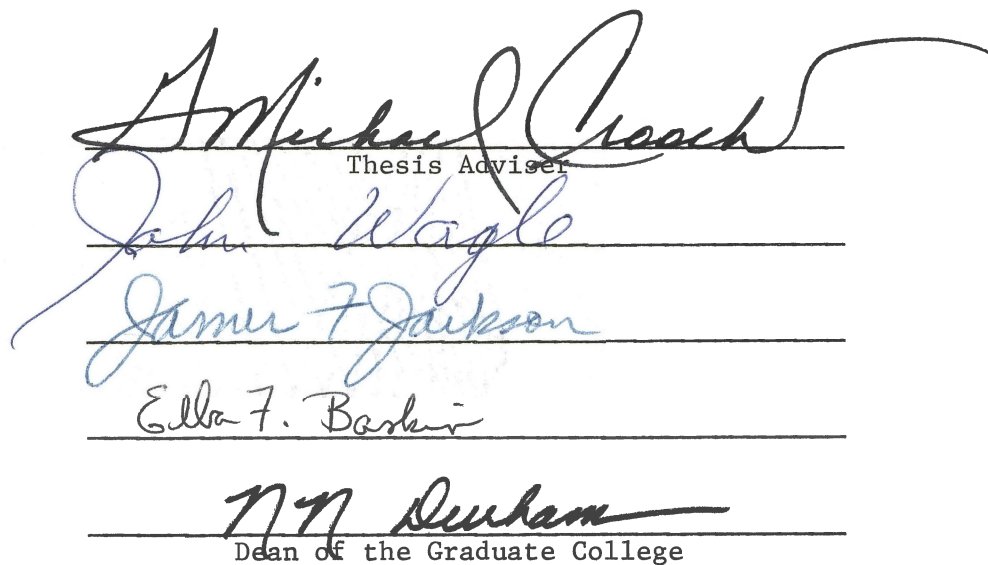 G Michael Crooch
Thesis Adviser
John Wagle
James F Jackson
Elba F. Baskin
N N Durham
Dean of the Graduate College